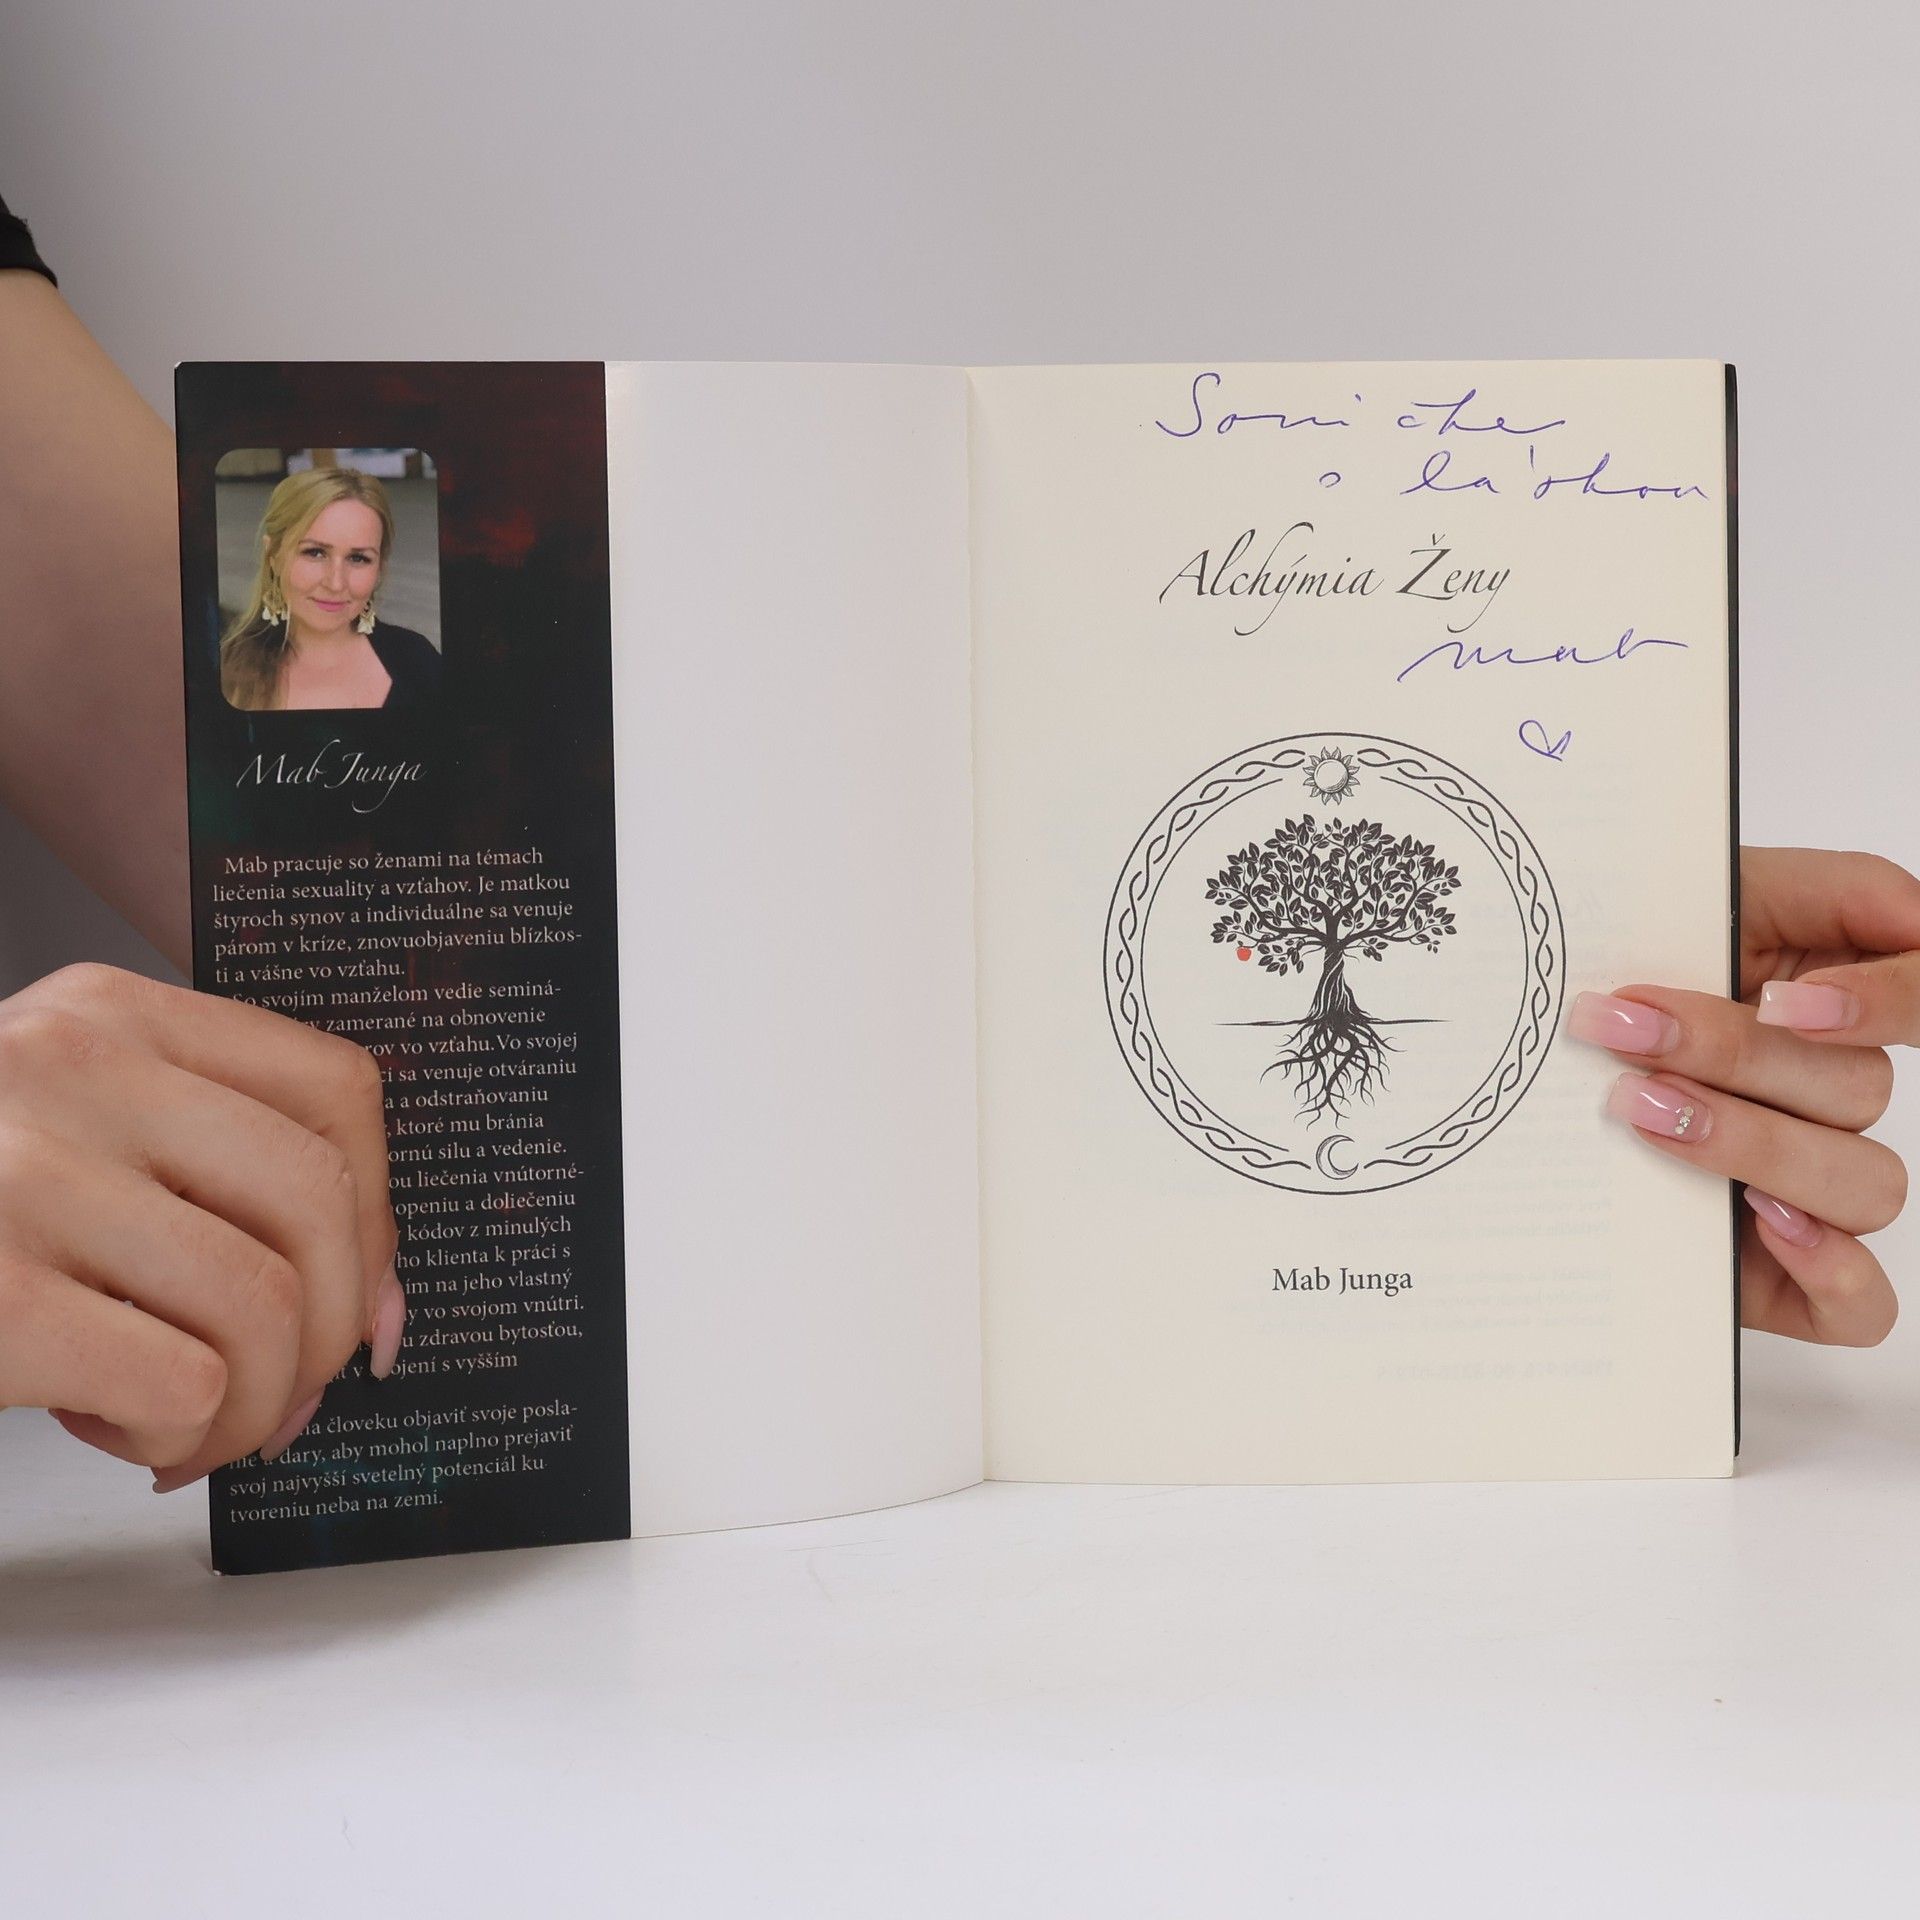 Mab Junga
Mab pracuje so ženami na témach
liečenia sexuality a vzťahov. Je matkou
štyroch synov a individuálne sa venuje
párom v kríze, znovuobjaveniu blízkos-
ti a vášne vo vzťahu.
So svojím manželom vedie seminá-
zamerané na obnovenie
vo vzťahu. Vo svojej
sa venuje otváraniu
a odstraňovaniu
ktoré mu bránia
silu a vedenie.
liečenia vnútorné-
a doliečeniu
kódov z minulých
klienta k práci s
na jeho vlastný
vo svojom vnútri.
zdravou bytosťou,
v spojení s vyšším
človeku objaviť svoje posla-
dary, aby mohol naplno prejaviť
svoj najvyšší svetelný potenciál ku
tvoreniu neba na zemi.
Soničke
s láskou
Alchýmia Ženy
mab
Mab Junga